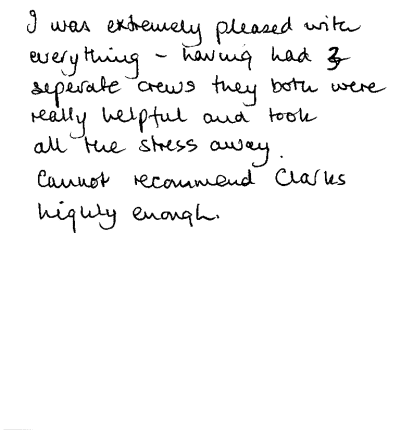 I was extremely pleased with
everything - having had 2
seperate crews they both were
really helpful and took
all the stress away.
Cannot recommend Clarks
highly enough.